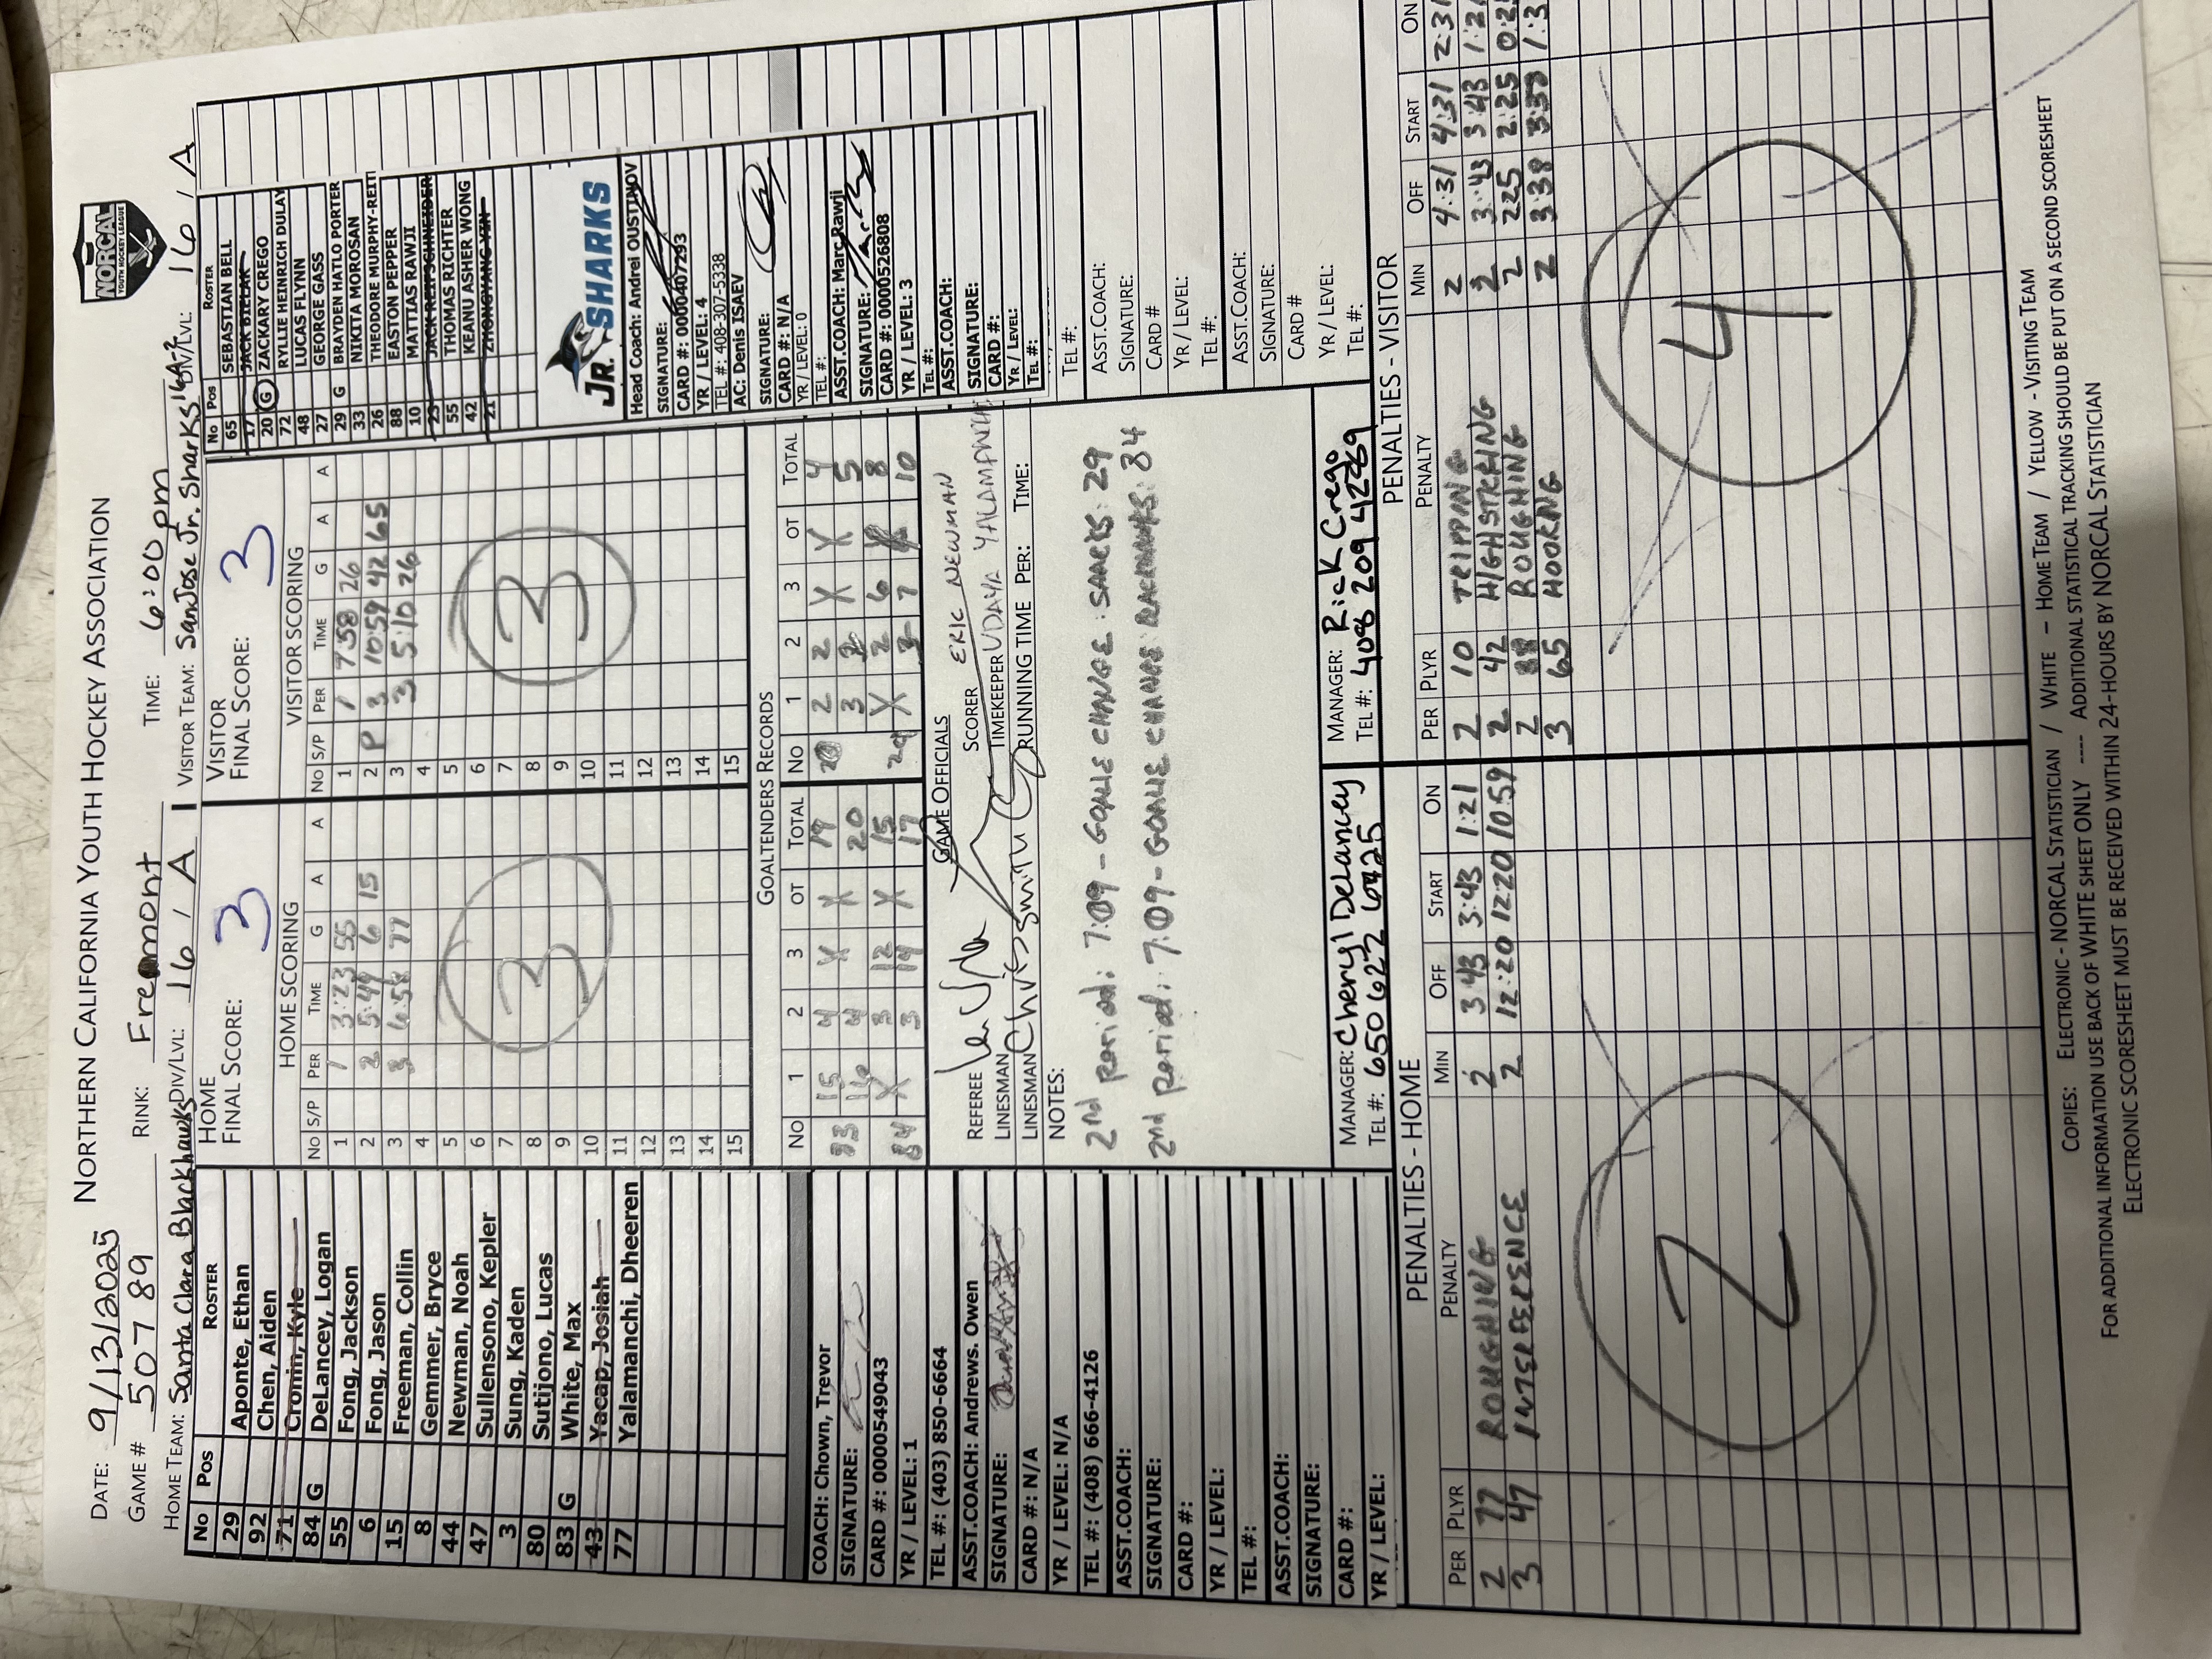 NORTHERN CALIFORNIA YOUTH HOCKEY ASSOCIATION
NORCAL
YOUTH HOCKEY LEAGUE
DATE: 9/13/2025
GAME # 50789 RINK: Fremont TIME: 6:00 pm
HOME TEAM: Santa Clara Blackhawks DIV/LVL: 16 / A
VISITOR TEAM: San Jose Jr. Sharks 16A-2 DIV/LVL: 16 / A
No Pos ROSTER
29 Aponte, Ethan
92 Chen, Aiden
71 Cronin, Kyle
84 G DeLancey, Logan
55 Fong, Jackson
6 Fong, Jason
15 Freeman, Collin
8 Gemmer, Bryce
44 Newman, Noah
47 Sullensono, Kepler
3 Sung, Kaden
80 Sutijono, Lucas
83 G White, Max
43 Yacap, Josiah
77 Yalamanchi, Dheeren
COACH: Chown, Trevor
SIGNATURE:
CARD #: 0000549043
YR / LEVEL: 1
TEL #: (403) 850-6664
ASST.COACH: Andrews. Owen
SIGNATURE:
CARD #: N/A
YR / LEVEL: N/A
TEL #: (408) 666-4126
ASST.COACH:
SIGNATURE:
CARD #:
YR / LEVEL:
TEL #:
ASST.COACH:
SIGNATURE:
CARD #:
YR / LEVEL:
HOME
FINAL SCORE: 3
HOME SCORING
No S/P PER TIME G A A
1 1 3:23 55
2 2 5:49 6 15
3 3 6:58 77
4
5
6
7
8
9
10
11
12
13
14
15
3
VISITOR
FINAL SCORE: 3
VISITOR SCORING
No S/P PER TIME G A A
1 1 7:58 26
2 P 3 10:59 42 65
3 3 5:10 26
4
5
6
7
8
9
10
11
12
13
14
15
3
GOALTENDERS RECORDS
No 1 2 3 OT TOTAL
83 15 4 X X 19
16 4 X X 20
X 3 12 X 15
84 X 3 14 17
No 1 2 3 OT TOTAL
2 2 X X 4
3 2 X 5
29 X 2 6 8
X 3 7 10
GAME OFFICIALS
REFEREE
LINESMAN
LINESMAN Chris Smith
SCORER ERIC NEWMAN
TIMEKEEPER UDAYA
RUNNING TIME PER: TIME:
NOTES:
2nd Period: 7:09 - GOALIE CHANGE: SHARKS: 29
2nd Period: 7:09 - GOALIE CHANGE: BLACKHAWKS: 84
MANAGER: Cheryl Delancey
TEL #: 650 622 6425
MANAGER: Rick Crego
TEL #: 408 209 4269
No Pos ROSTER
65 SEBASTIAN BELL
17 JACK BIELAK
20 G ZACKARY CREGO
72 RYLLIE HEINRICH DULAY
48 LUCAS FLYNN
27 GEORGE GASS
29 G BRAYDEN HATLO PORTER
33 NIKITA MOROSAN
26 THEODORE MURPHY-REIT
88 EASTON PEPPER
10 MATTIAS RAWJI
23 JACK REIFSCHNEIDER
55 THOMAS RICHTER
42 KEANU ASHER WONG
21 ZHONGYANG YIN
JR. SHARKS
Head Coach: Andrei OUSTINOV
SIGNATURE:
CARD #: 0000407293
YR / LEVEL: 4
TEL #: 408-307-5338
AC: Denis ISAEV
SIGNATURE:
CARD #: N/A
YR / LEVEL: 0
TEL #:
ASST.COACH: Marc Rawji
SIGNATURE:
CARD #: 0000526808
YR / LEVEL: 3
TEL #:
ASST.COACH:
SIGNATURE:
CARD #:
Yr / Level:
TEL #:
TEL #:
ASST.COACH:
SIGNATURE:
CARD #
YR / LEVEL:
TEL #:
ASST.COACH:
SIGNATURE:
CARD #
YR / LEVEL:
TEL #:
PENALTIES - HOME
PER PLYR PENALTY MIN OFF START ON
2 77 ROUGHING 2 3:43 3:43 1:21
3 47 INTERFERENCE 2 12:20 12:20 10:59
2
PENALTIES - VISITOR
PER PLYR PENALTY MIN OFF START ON
2 10 TRIPPING 2 4:31 4:31 2:31
2 42 HIGH STKING 2 3:43 3:43
2 88 ROUGHING 2 225 2:25
3 65 HOOKNG 2 3:38
4
COPIES: ELECTRONIC - NORCAL STATISTICIAN / WHITE – HOME TEAM / YELLOW - VISITING TEAM
FOR ADDITIONAL INFORMATION USE BACK OF WHITE SHEET ONLY ---- ADDITIONAL STATISTICAL TRACKING SHOULD BE PUT ON A SECOND SCORESHEET
ELECTRONIC SCORESHEET MUST BE RECEIVED WITHIN 24-HOURS BY NORCAL STATISTICIAN